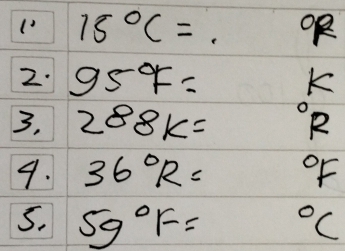 1. 15°C = . °R
2. 95°F = K
3. 288K = °R
4. 36°R = °F
5. 59°F = °C